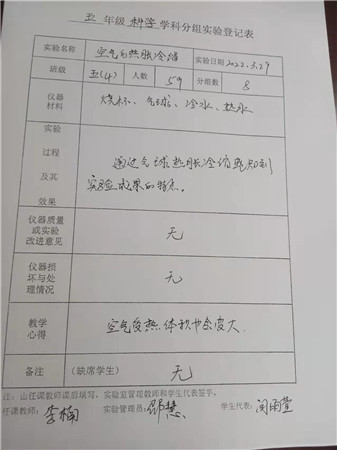 五 年级 科学 学科分组实验登记表
实验名称 空气的热胀冷缩 实验日期 2022.3.29
班级 五(4) 人数 59 分组数 8
仪器
材料 烧杯、气球、冷水、热水
实验
过程
及其
效果
通过气球热胀冷缩
实验效果的特点。
仪器质量
或实验
改进意见 无
仪器损
坏与处
理情况 无
教学
心得 空气受热体积中会变大
备注 (缺席学生) 无
注:由任课教师课前填写,实验监管理教师和学生代表签字。
任课教师: 李楠 实验管理员: 邵慧 学生代表: 闵雨萱